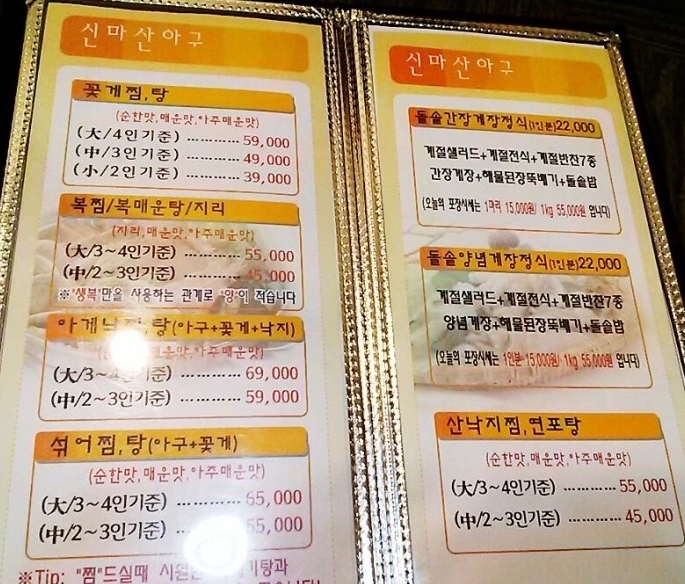 신마산아구
꽃게찜,탕
(순한맛,매운맛,아주매운맛)
(大/4인기준) ............ 59,000
(中/3인기준) ............ 49,000
(小/2인기준) ............ 39,000
복찜/복매운탕/지리
(지리,매운맛,아주매운맛)
(大/3~4인기준) ............ 55,000
(中/2~3인기준) ............ 45,000
※"생복"만을 사용하는 관계로 "양"이 적습니다
아게낙찜,탕(아구+꽃게+낙지)
매운맛,아주매운맛)
(大/3~4인기준) ............ 69,000
(中/2~3인기준) ............ 59,000
섞어찜,탕(아구+꽃게)
(순한맛,매운맛,아주매운맛)
(大/3~4인기준) ............ 65,000
(中/2~3인기준) ............ 55,000
※Tip: "찜"드실때
신마산아구
돌솥간장게장정식(1인분)22,000
계절샐러드+계절전식+계절반찬7종
간장게장+해물된장뚝배기+돌솥밥
(오늘의 포장시세는 1마리 15,000원/ 1kg 55,000원 입니다)
돌솥양념게장정식(1인분)22,000
계절샐러드+계절전식+계절반찬7종
양념게장+해물된장뚝배기+돌솥밥
(오늘의 포장시세는 1인분 15,000원/ 1kg 55,000원 입니다)
산낙지찜,연포탕
(순한맛,매운맛,아주매운맛)
(大/3~4인기준) ............ 55,000
(中/2~3인기준) ............ 45,000